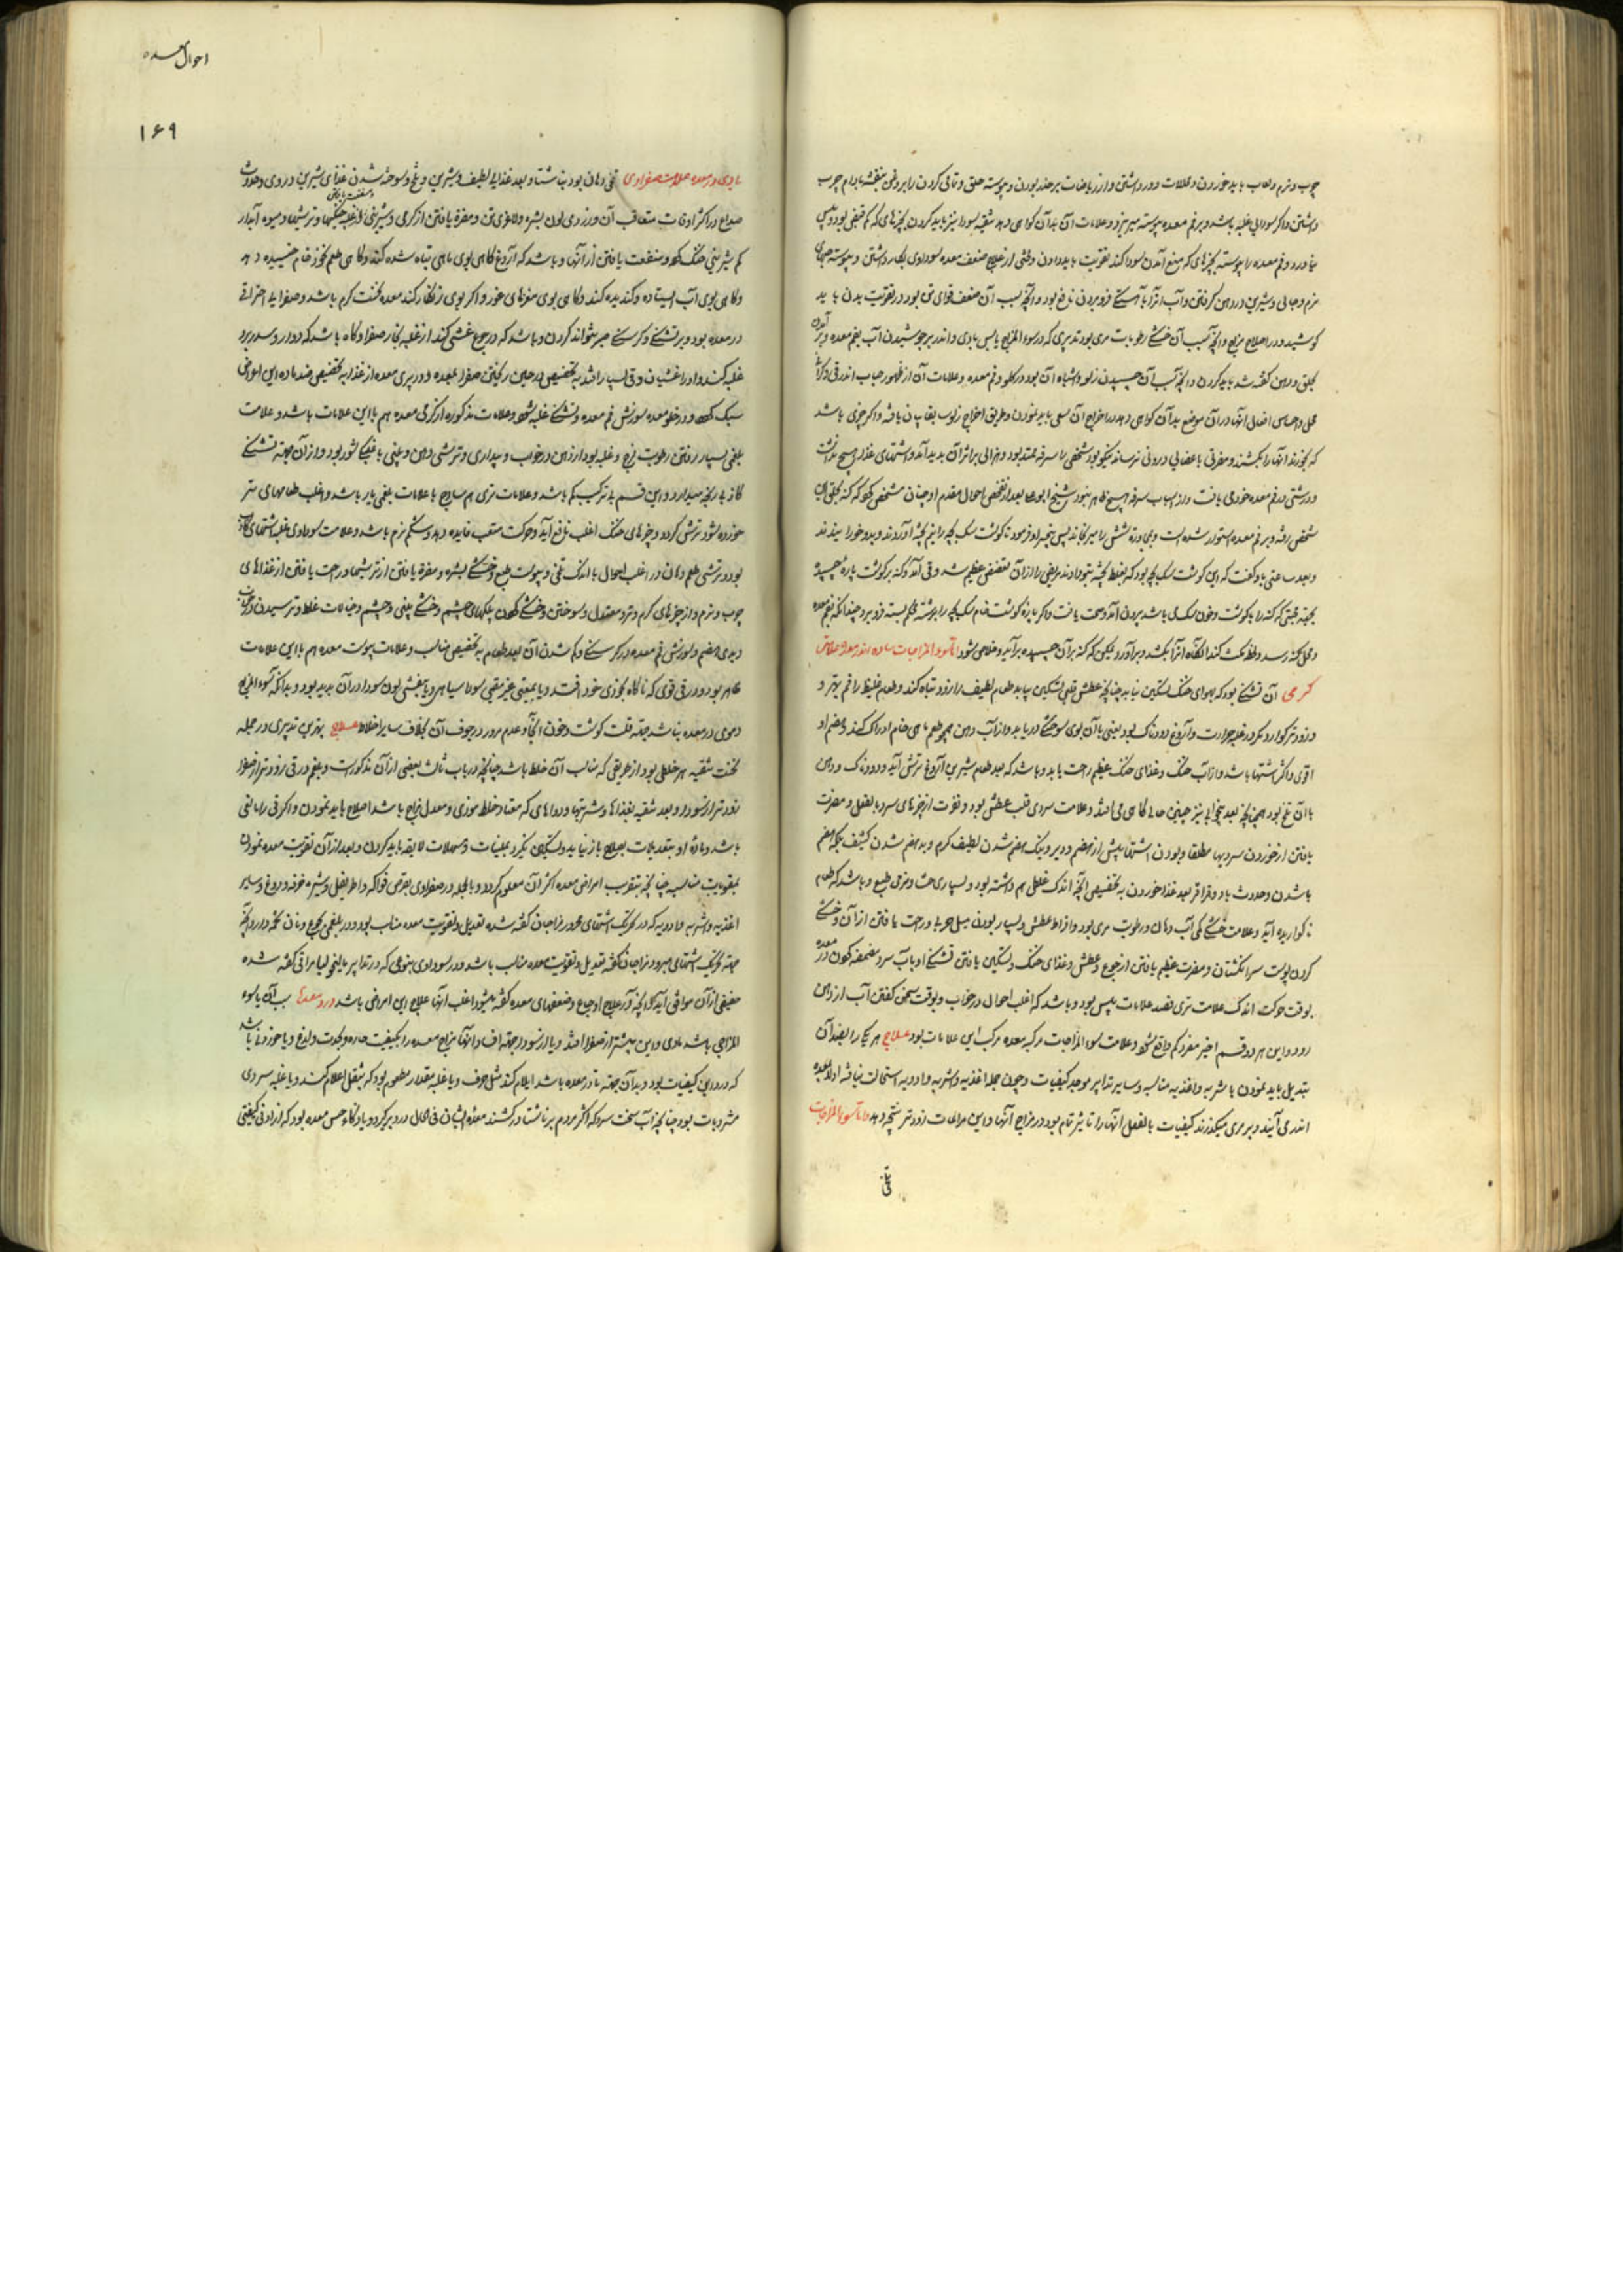 چرب و نرم و لعاب باید خوردن و محللات دور داشتن و از ریاضات بر حذر بودن و پیوسته حلق و تمامی گردن را بروغن بنفشه بادام چرب
داشتن و اگر سودایی غلبه باشد و بر فم معده پیوسته میریزد و علامات آن بدآن گواهی دهد تنقیه سودا نیز باید کردن بچیزهای که کم قبض بود و قی
نیاورد و فم معده را پیوسته بچیزهای که منع آمدن سودا کند تقویت باید دادن و قی از علاج ضعف معده سوداوی بکار داشتن و پیوسته
نرم و شیرین در دهن گرفتن و آب آنرا بآهستگی فرو بردن نافع بود و آنچه سبب آن ضعف قوای تن بود در تقویت بدن باید
کوشید و در اصلاح مزاج و آنچه سبب آن خشکی رطوبات مری بود تدبیری که در سوء المزاج یابس مادی و اندر برجوشیدن آب بفم معده و
بحلق و دهن گفته شد باید کردن و آنچه سبب آن چسپیدن زلو و اشباه آن بود در گلو و فم معده و علامات آن از ظهور
محل و احساس افعال آنها در آن موضع بدآن گواهی دهد در اخراج آن سعی باید نمودن و طریق اخراج زلو یافته و اگر چیزی باشد
که بخورند آنها را بکشد و مضرتی باعضای درونی نرساند نیکو بود شخصی را سرفه ممتد بود و هزالی بر اثر آن پدید آمد و اشتهای غذا هیچ نداشت
و درشتی در فم معده خود می یافت و از اسباب سرفه هیچ ظاهر نبود شیخ ابو علی بعد از تفحص احوال مقدم او چنان مشخص کرد که کنه بحلق این
شخص رفته و بر فم معده استوار شده است پس بخیر او فرمود تا گوشت سگ بچه را نیم پخته آوردند و بدو خورانیدند
و بعد ساعتی باو گفت که این گوشت سگ بچه بود که بغلط پخته بتو دادند مریض را از آن تنفر عظیم شد و قی آمد و کنه بر گوشت پاره چسپیده
بجهة محبتی که کنه را با گوشت و خون سگ می باشد بیرون آمد و صحت یافت و اگر پارهٔ گوشت خام سگ بچه را بر رشته محکم بسته فرو برد چنانکه بفم معده
و محل کنه رسد و لحظه مکث کند آنگاه آنرا بکشد و بر آورد ممکن که کنه بر آن چسپیده برآید و خلاص شود اما سوء المزاجات ساده اندر معده علامات
گرمی آن تشنگی بود که بهوای خنک تسکین نیابد چنانچه عطش قلبی تسکین یابد و طعام لطیف را زود تباه کند و طعام غلیظ را هضم بهتر و
و زودتر گوارد مگر در غلبه حرارت و آروغ دودناک بود یعنی با آن بوی سوختگی دریابد و از آب دهن همچو طعم ماهی خام ادراک کند و هضم او
اقوی و اکثر اشتها باشد و از آب خنک و غذای خنک عظیم راحت یابد و باشد که بعد طعام شیرین آروغ ترش آید و دودناک و دهن
با آن تلخ بود همچنانکه بعد بیخوابی نیز چنین حالی گاهی می افتد و علامت سردی قلت عطش بود و نفرت از چیزهای سرد بالفعل و مضرت
یافتن از خوردن سردیها مطلقا و بودن اشتها بیش از هضم و دیر و نیک هضم شدن لطیف گرم و بد هضم شدن کثیف بلکه هضم
باشدن و حدوث باد و قراقر بعد غذا خوردن به تخصیص آنچه اندک غلظی هم داشته بود و بسیاری جشا و نرمی طبع و باشد که طعام
ناگواریده آید و علامت خشکی کمی آب دهان و رطوبت مری بود و افراط عطش و بسیار بودن میل طبع و راحت یافتن از آن و خشکی
کردن پوست سر انگشتان و مضرت عظیم یافتن از جوع و عطش و غذای خشک و تسکین یافتن تشنگی او بآب سرد مضمضه کردن
بوقت حرکت اندک علامت تری ضد علامات یبس بود و باشد که اغلب احوال در خواب و بوقت سخن گفتن آب از دهن
رود و این هر دو قسم اخیر مفرد کم واقع شود و علامت سوء المزاجات مرکبه معده مرکب این علامات بود علاج هر یک را بضد آن
تبدیل باید نمودن باشربه و اغذیه مناسبه و سایر تدابیر موجد کیفیات و چون جمله اغذیه و اشربه و ادویه استحالت نیافته اولا بمعده
اندر می آیند و بر مری میگذرند کیفیات بالفعل آنها را تاثیر تمام بود در مزاج آنها و این مراعات زودتر نتیجه دهد اما سوء المزاجات
احوال معده
۱۶۹
مادی در معده علامات صفراوی تلخی دهان بود بناشتا و بعد غذای لطیف و شیرین و تلخ و سوخته شدن غذای شیرین در وی و حدوث
صداع در اکثر اوقات متعاقب آن و زردی لون بشره و لاغری تن و مضرة یافتن از گرمی و شیرینی و ترشیها و میوه آبدار
کم شیرینی خنک کرده و منفعت یافتن از آنها و باشد که آروغ گاهی بوی ماهی تباه شده کند و گاهی طعم خام خیسیده دهد
و گاهی بوی آب ایستاده و گندیده کند و گاهی بوی و اگر بوی زنگار کند معده سخت گرم باشد و صفرایی احتراقی
در معده بود و بر تشنگی و گرسنگی صبر نتواند کردن و باشد که در جوع غشی کند از غلبه بخار صفرا و گاه باشد که دوار و سدر برو
غلبه کند و او را غثیان و قی بسیار افتد به تخصیص در حین ریختن صفرا بمعده و در پری معده از غذا به تخصیص ضد ماده این اعراض
سبک گردد و در خلو معده سوزش فم معده و تشنگی غلبه شود و علامات مذکوره از گرمی معده هم با این علامات باشد و علامت
بلغمی بسیار رفتن رطوبت لزج و غلبه بود از دهن در خواب و بیداری و ترشی دهن و بی طعمی یا شور بود و از آن جهة تشنگی
کاذب پدید آرد و این قسم بی ترکیب کم باشد و علامات تری هم ساده با علامات بلغمی یار باشد و اغلب طعامهای تر
خورده شود ترش گردد و چیزهای خشک اغلب نافع آید و حرکت متعب فایده دهد و شکم نرم باشد و علامت سوداوی غلبه اشتهای کاذب
بود و ترشی طعم دهان در اغلب احوال با اندک تلخی و یبوست طبع و خشکی بشره و مضرة یافتن از ترشیها و راحت یافتن از غذاهای
چرب و نرم و از چیزهای گرم و تر و معتدل و سوختن و خشک شدن پلکهای چشم و خشکی بینی و چشم و خیالات غلط و ترسیدن
و بدی هضم و سوزش فم معده در گرسنگی و کم شدن آن بعد طعام به تخصیص مناسب و علامات یبوست معده هم با این علامات
ظاهر بود و در قی قوی که ناگاه بخودی خود افتد و یا بمعینی غیر مقیی سودا سیاهی و یا بنفشی لون سودا در آن پدید بود و بدآنکه سوء المزاج
دموی در معده نباشد جهة قلت گوشت و خون آنجا و عدم مرور در جوف آن بخلاف سایر اخلاط علاج بهترین تدبیری در جمله
نخست تنقیه هر خلطی بود از طریقی که مناسب آن خلط باشد چنانچه در باب ثالث بعضی از آن مذکورست و بلغم در قی زودتر از صفرا
زودتر از سودا و بعد تنقیه بغذاها و شربتها و دواهای که مضاد خلط موذی و معدل مزاج باشد اصلاح باید نمودن و اگر قی را مانعی
باشد و ماده او بتعدیلات بصلاح باز نیاید و تسکین نگیرد بملینات و مسهلات لایقه باید کردن و بعد از آن تقویت معده نمودن
بمقویات مناسبه چنانچه بتقریب امراض معده اکثر آن معلوم گردد و بالجمله در صفراوی بقرص فواکه و اطریفل و شیره خرفه و دوغ و سایر
اغذیه و اشربه و ادویه که در تحریک اشتهای محرور مزاجان گفته شده تعدیل و تقویت معده مناسب بود و در بلغمی بجوع و نان
جهة تحریک اشتهای مبرود مزاجان گفته تعدیل و تقویت معده مناسب باشد و در سوداوی بنوعی که در تدابیر مالیخولیا مراقی گفته شده
حفیفی از آن موافق آید و آنچه در علاج اوجاع و ضعفهای معده گفته میشود اغلب آنها علاج این امراض باشد درد معده سبب آن یا سوء
المزاجی باشد مادی و این بیشتر از صفرا افتد و یا از سودا جهة آنکه آنها مزاج معده را بکیفیت حاده و بحدت و لذع و یا خوردنی باشد
که در وی کیفیات بود و بدآن جهة تا در معده باشد ایلام کند مثل حرف و یا غلبه مقدار مطعوم بود که بثقل اعلام کند و یا غلبه سردی
مشروبات بود چنانچه آب سخت سرد که اکثر مردم بر ناشتا در کشند معده ایشان فی الحال درد برگیرد و یا ذکاء حس معده بود که از ادنی کیفیتی